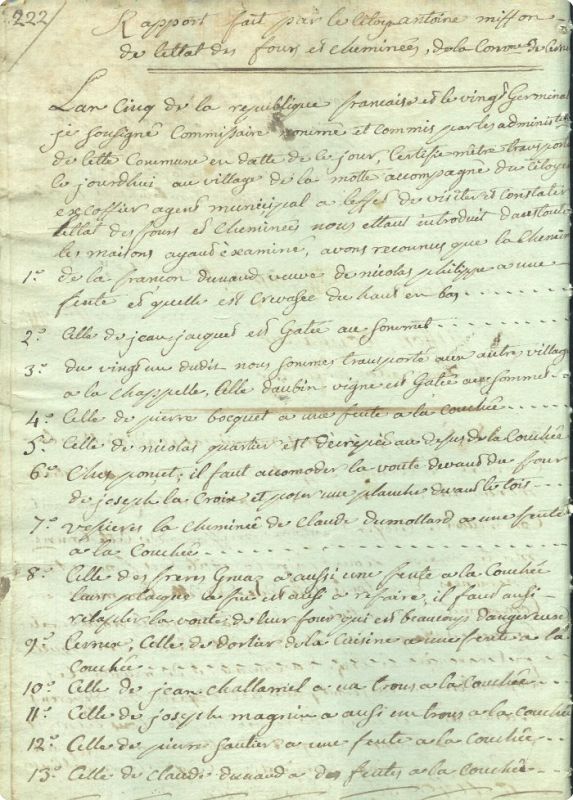 222/
Rapport fait par le Citoy. antoine miffon
de lettat des fours et cheminées, de la Comne De
Lan Cinq de la republique francaise et le vingt Germinal
je sousigné Commissaire nommé et commis par les administ
de Cette Commune en datte de ce jour, Certifie mêtre transporté
ce jourdhui au village de la motte accompagné du Citoyen
excoffier agent municipal a leffet de visiter et constater
lettat des fours et cheminées nous ettant introduit dans toute
les maisons ayant examiné, avons reconnus que la Chemin
1.° de la francon dunand veuve de nicolas philippe a une
fente et quelle est crevasée du haut en bas
2.° Celle de jean jacques est Gatée au sommet
3.° du vingt un dudit nous sommes transporté a un autre village
a la chappelle, Celle daubin vigne est Gatée au Sommet
4.° Celle de pierre bocquet a une fente a la Couchée
5.° Celle de nicolas quartier est décrepiée au depus de la Couchée
6.° Chez poncet; il faut accomoder la voute devant du four
de joseph la Croix et poser une planche devant le tois
7.° vesieres la cheminée de Claude dumollard a une fente
a la Couchée
8.° Celle des freres Gruaz a aussi une fente a la Couchée
leurs plaque a feu est aussi a refaire, il faut aussi
la voute de leur four qui est beaucoup dangereuse
9.° Cernix, Celle de dortier de la Cuisine a une fente a la
Couchée
10.° Celle de jean challamel a un trous a la Couchée
11.° Celle de joseph magnin a aussi un trous a la Couchée
12.° Celle de pierre sautier a une fente a la Couchée
13.° Celle de Claude dunand a des fentes a la Couchée